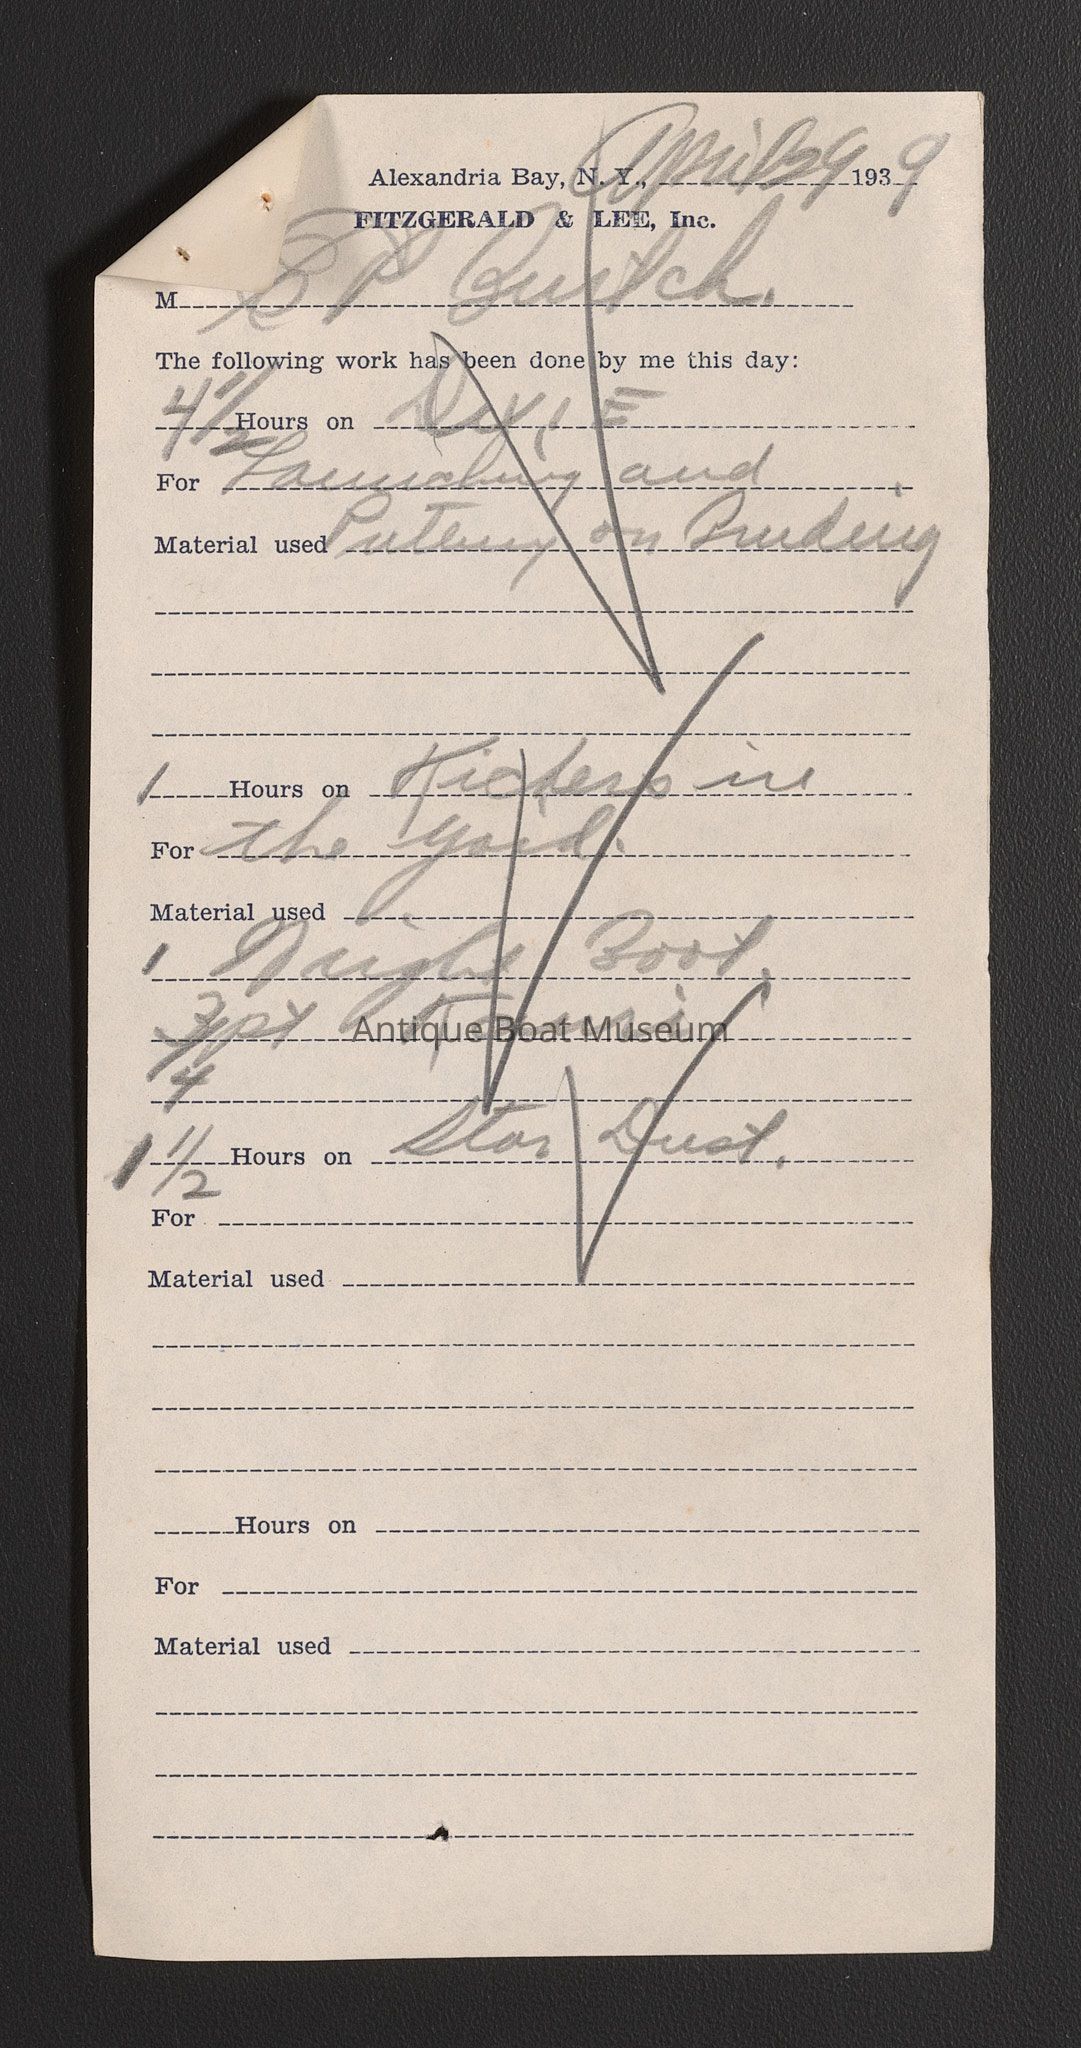 Alexandria Bay, N. Y., April 29 1939
FITZGERALD & LEE, Inc.
M
The following work has been done by me this day:
4 1/2 Hours on Dixie
For Launching and
Material used Puteing on
1 Hours on Kickers in
For the yard.
Material used
1 Boot.
3/4 pt
Antique Boat Museum
1 1/2 Hours on Star Dust.
For
Material used
Hours on
For
Material used